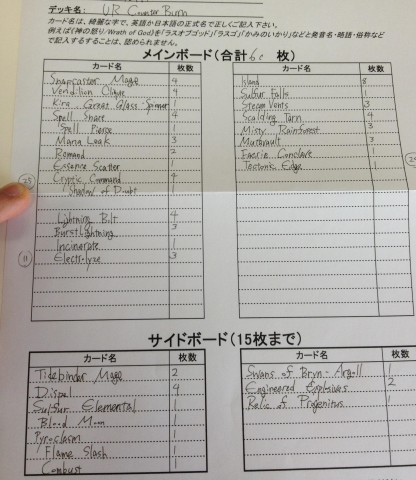 デッキ名: UR Counter Burn
カード名は、綺麗な字で、英語か日本語の正式名で正しくご記入下さい。
例えば《神の怒り/Wrath of God》を「ラスオブゴッド」「ラスゴ」「かみのいかり」などと発音名・略語・俗称など
で記入することは、認められません。
メインボード(合計60 枚)
カード名 枚数
Snapcaster Mage 4
Vendilion Clique 4
Kira, Great Glass-Spinner 1
Spell Snare 4
Spell Pierce 1
Mana Leak 3
Remand 2
Essence Scatter 1
Cryptic Command 4
Shadow of Doubt 1
Lightning Bolt 4
Burst Lightning 3
Incinerate 1
Electrolyze 3
25
11
カード名 枚数
Island 8
Sulfur Falls 1
Steam Vents 3
Scalding Tarn 4
Misty Rainforest 3
Mutavault 3
Faerie Conclave 1
Tectonic Edge 1
サイドボード(15枚まで)
カード名 枚数
Tidebinder Mage 2
Dispel 4
Sulfur Elemental 1
Blood Moon 1
Pyroclasm 1
Flame Slash 1
Combust 1
カード名 枚数
Swans of Bryn-Argoll 1
Engineered Explosives 2
Relic of Progenitus 1